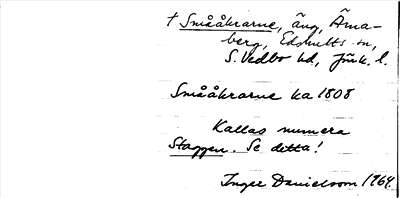 † Småålrarne, äng, Ärna-
berg, Edshults sn,
S. Vedbo hd, Jönk. l.
Småålrarne ka 1808
Kallas numera
Staggen. Se detta!
Inger Danielsson 1969.